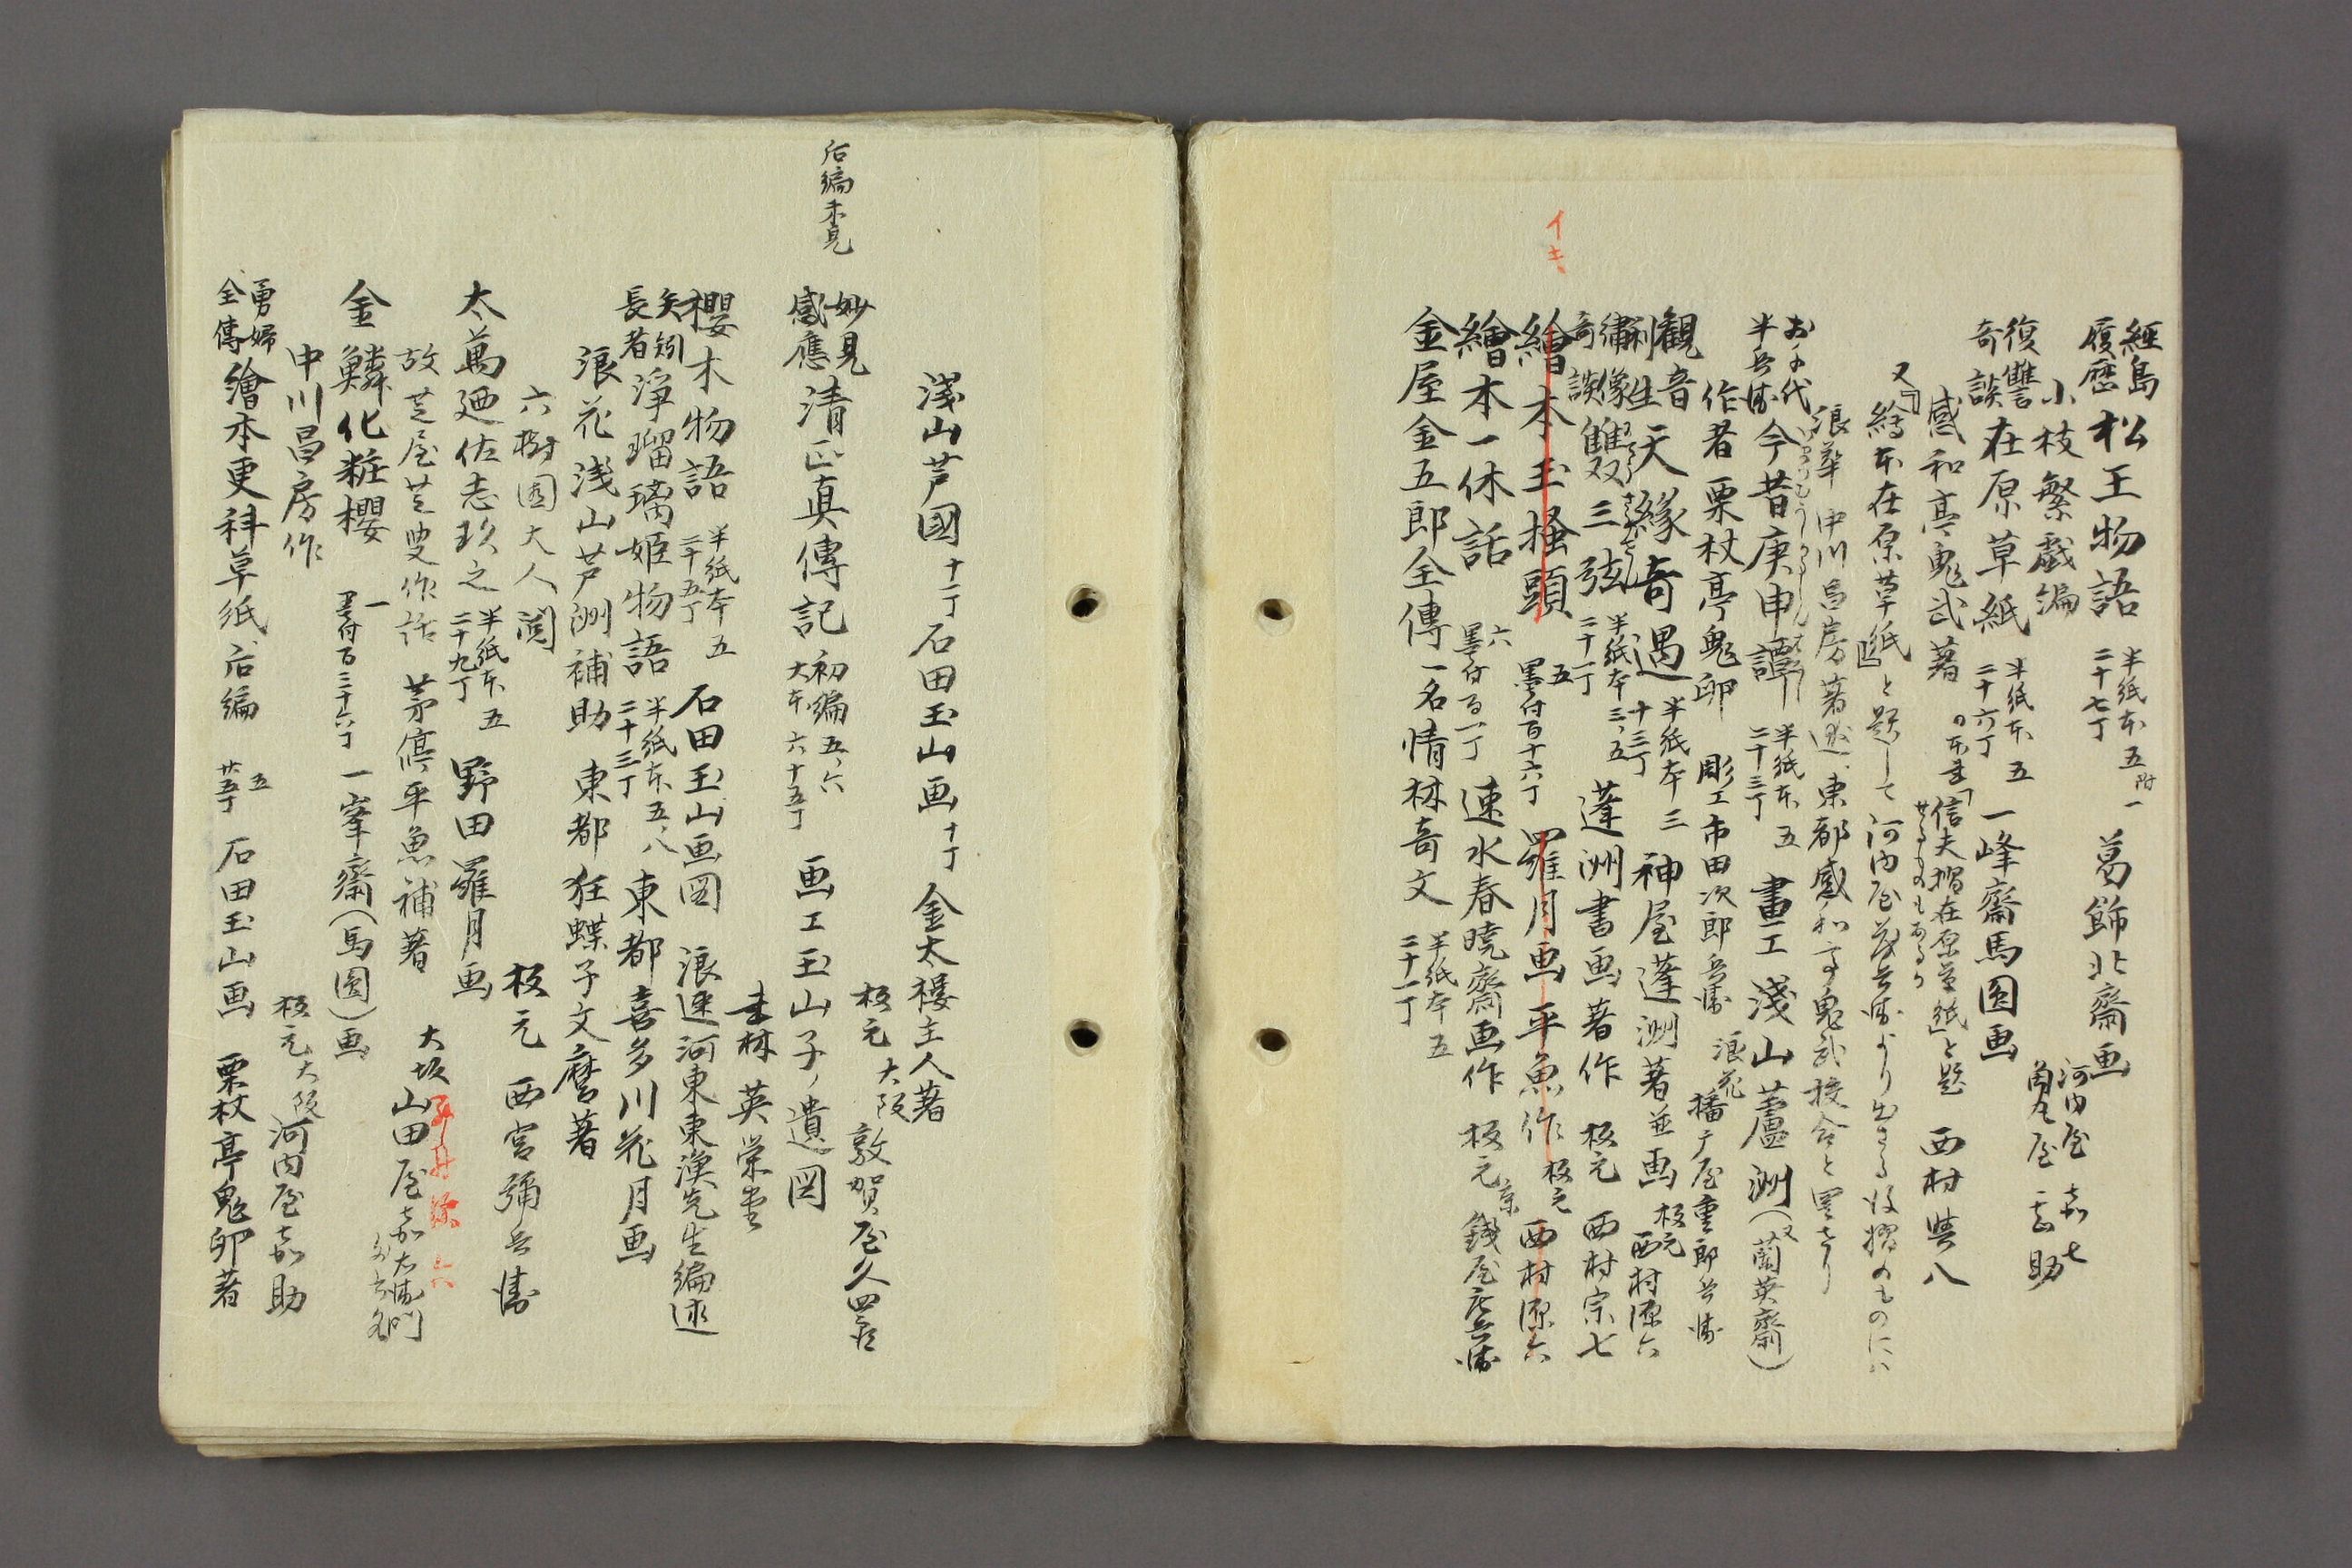 経島
履歴 松王物語 半紙本五 附一 葛飾北齋画
二十七丁
小枝繁戯編 河内屋 嘉七
角丸屋 甚助
復讐
奇談 在原草紙 半紙本 五 一峰齋馬圓画
二十六丁
感和亭鬼武著 の本圭「信夫摺在原草紙」と題
せるものもあるか 西村與八
又「繪本在原草紙」と題して河内屋茂兵衛より出さる後摺のものにハ
浪華 中川昌房著述 東都感和亭鬼武校合と
お千代
半兵衛 今昔庚申譚 半紙本 五 畫工 淺山蘆洲(又蘭英齋)
二十三丁
作者 栗杖亭鬼卵 彫工 市田次郎兵衛 浪花 播广屋重郎兵衛
観音
利生 天縁奇遇 半紙本 三 神屋蓬洲著並画 板元 西村源六
十三丁
繍像
奇談 雙三弦 半紙本 三、五 蓬洲書画著作 板元 西村宗七
二十丁
イキ
繪本玉搔頭 五 墨付百十六丁 羅月画 平魚作 板元 西村源六
繪本一休話 六 墨付百一丁 速水春暁齋画作 板元 京 錢屋庄兵衛
金屋金五郎全傳 一名情林奇文 半紙本 五
二十一丁
淺山芦國 十一丁 石田玉山画 十丁 金太楼主人著
板元 大阪 敦賀屋久四良
后編未見
妙見
感應 清正真傳記 初編 五、六 画工玉山子ノ遺図
大本 六十五丁
書林 英栄堂
櫻木物語 半紙本 五 石田玉山画図 浪速河東東漁先生編述
二十五丁
矢矧
長者 淨瑠璃姫物語 半紙本 五、八 東都喜多川花月画
二十三丁
浪花浅山芦洲補助 東都狂蝶子文麿著
六樹園大人閲 板元 西宮彌兵衛
太萬廼佐志玖之 半紙本 五 野田羅月画
二十九丁
故芝屋芝叟作話 茅停平魚補著 大坂 山田屋嘉右衛門
金鱗化粧櫻 一 墨付百三十六丁 一峯齋(馬圓)画
中川昌房作 板元 大阪 河内屋嘉助
勇婦
全傳 繪本更科草紙 后編 五 廿五丁 石田玉山画 栗杖亭鬼卵著